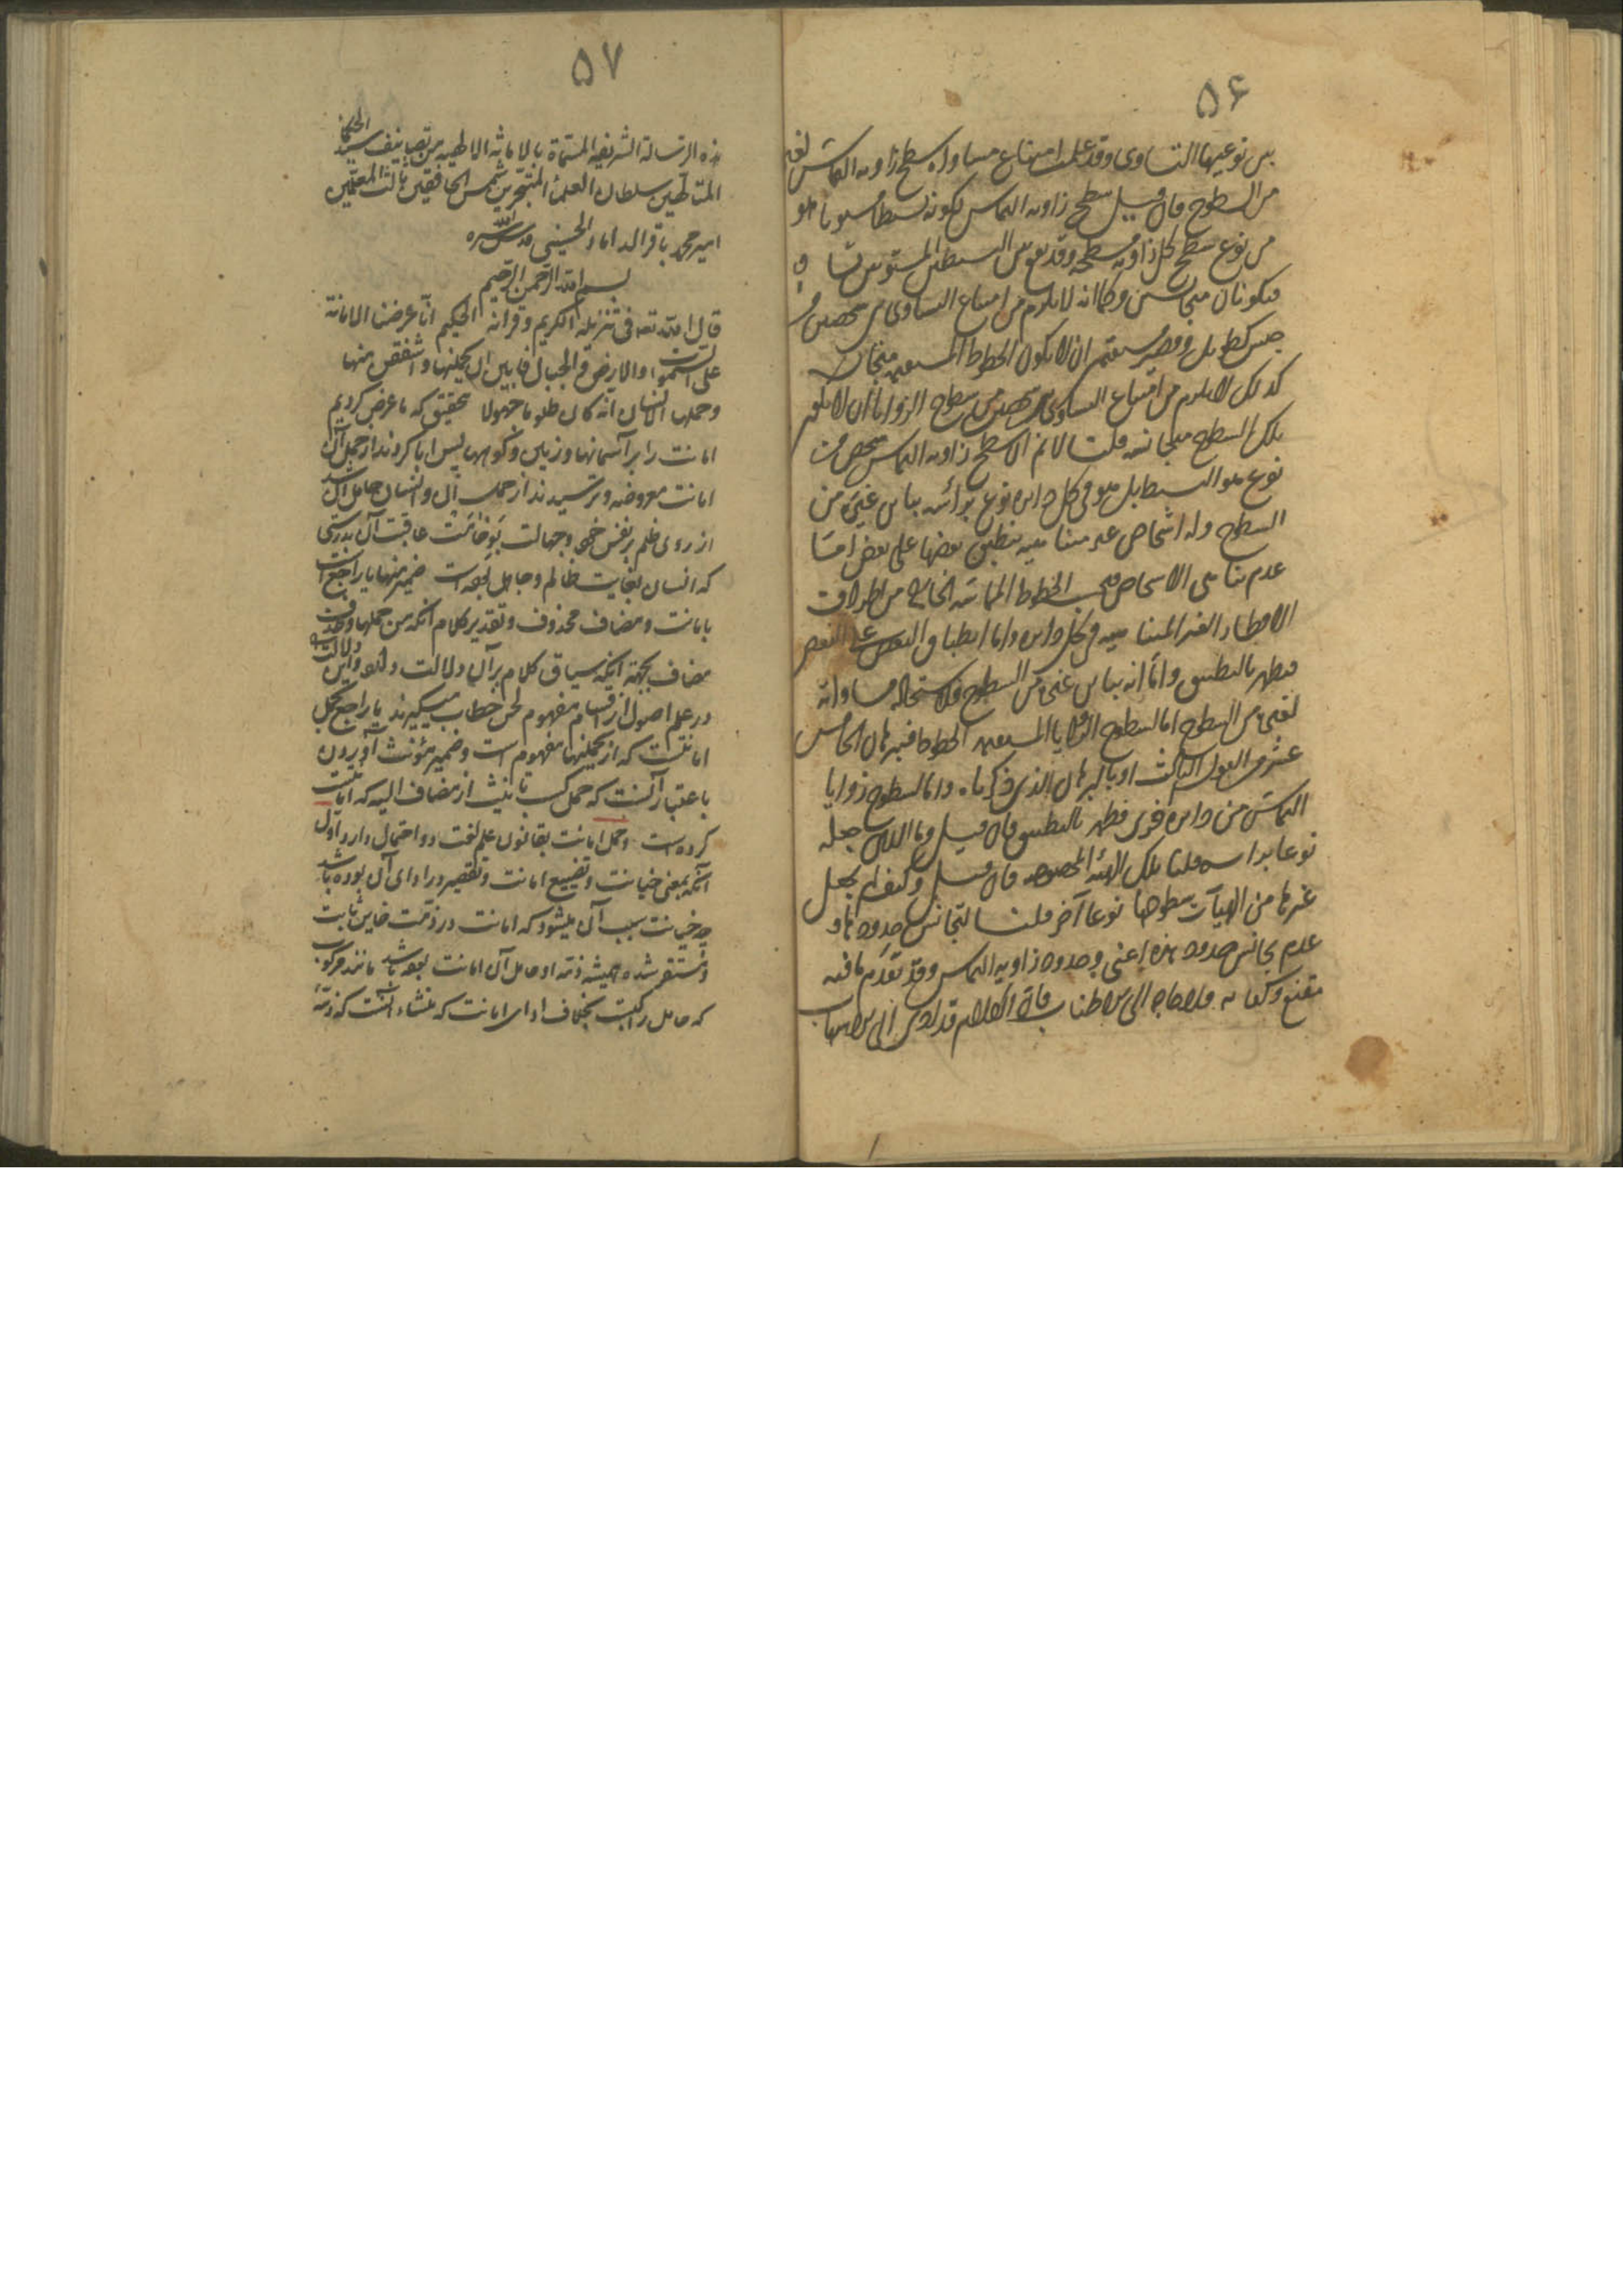 ۵۶
بين نوعيهما التساوى وقد علمت امتناع مساواه سطح زاويه التماس لغيره
من السطوح فان قيل سطح زاويه التماس لكونه بسيطا مستويا هو
من نوع سطح كل زاويه مسطحه وقد يقع بين البسيطين المستويين تساو
فيكونان متجانسين وكما انه لا يلزم من امتناع التساوى بين شخصين من
جنس كطويل وقصير مستقيم ان لا يكون الخطوط المستقيمه متجانسه
كذلك لا يلزم من امتناع التساوى بين شخصين من سطوح الزوايا ان لا يكون
تلك السطوح متجانسه قلت لا نم ان سطح زاويه التماس شخص من
نوع هو البسيط بل هو فى كل دايره نوع برأسه يباين غيره من
السطوح وله اشخاص غير متناهيه ينطبق بعضها على بعض امّا
عدم تناهى الاشخاص فبحسب الخطوط المماسّه الخارجه من اطراف
الاقطار الغير المتناهيه فى كل دايره واما انطباق البعض على البعض
فيظهر بالتطبيق وامّا انه يباين غيره من السطوح فلاستحاله مساواته
لغيره من السطوح اما لسطوح الزوايا المستقيمه الخطوط فببرهان الخامس
عشر من القول الثالث او بالبرهان الذى ذكرناه واما لسطوح زوايا
التماسّ من دايره اخرى فظهر بالتطبيق فان قيل وما الذى جعله
نوعا برأسه قلنا تلك الهيئه المخصوصه فان قيل وكيف لم يجعل
غيرها من الهيآت سطوحها نوعا آخر قلنا لتجانس حدودها و
عدم تجانس حدود هذه اعنى وحدود زاويه التماس وقد تقدّم ما فيه
مقنع وكفايه فلا حاجه الى الاطناب فان الكلام قد ادى الى الاسهاب
۵۷
هذه الرسالة الشريفه المسمّاة بالامانة الالهيه من تصانيف سيد الحكما
المتالّهين سلطان العلمآ المتبحّرين شمس الخافقين ثالث المعلمين
امير محمد باقر الداماد الحسينى قدس اللّه سره
بسم اللّه الرّحمن الرّحيم
قال اللّه تعه فى تنزيله الكريم وقرانه الحكيم انّا عرضنا الامانة
على السموات والارض والجبال فابين ان يحملنها واشفقن منها
وحملها الانسان انه كان ظلوما جهولا تحقيق كه ما عرض كرديم
امانت را بر آسمانها وزمين وكوهها پس ابا كردند از حمل آن
امانت معروضه وترسيدند از حمل آن وانسان حامل آن شد
از روى ظلم بر نفس خود وجهالت بوخامت عاقبت آن بدرستى
كه انسان بغايت ظالم وجاهل بوده است ضمير منها يا راجع است
بامانت ومضاف محذوف وتقدير كلام آنكه من حملها وحذف
مضاف بجهة آنكه سياق كلام بر آن دلالت دارد واين دلالت را
در علم اصول از اقسام مفهوم لحن خطاب ميگيرند يا راجع بحمل
امانتست كه از يحملنها مفهوم است وضمير مؤنث آوردن
باعتبار آنست كه حمل كسب تانيث از مضاف اليه كه امانتست
كرده است وحمل امانت بقانون علم لغت دو احتمال دارد اول
آنكه بمعنى خيانت وتضييع امانت وتقصير در اداى آن بوده باشد
چه خيانت سبب آن ميشود كه امانت در ذمّت خاين ثابت
ومستقر شده هميشه ذمّه او حامل آن امانت بوده باشد مانند مركوب
كه حامل راكبست بخلاف اداى امانت كه منشاء آنست كه ذمّهٔ